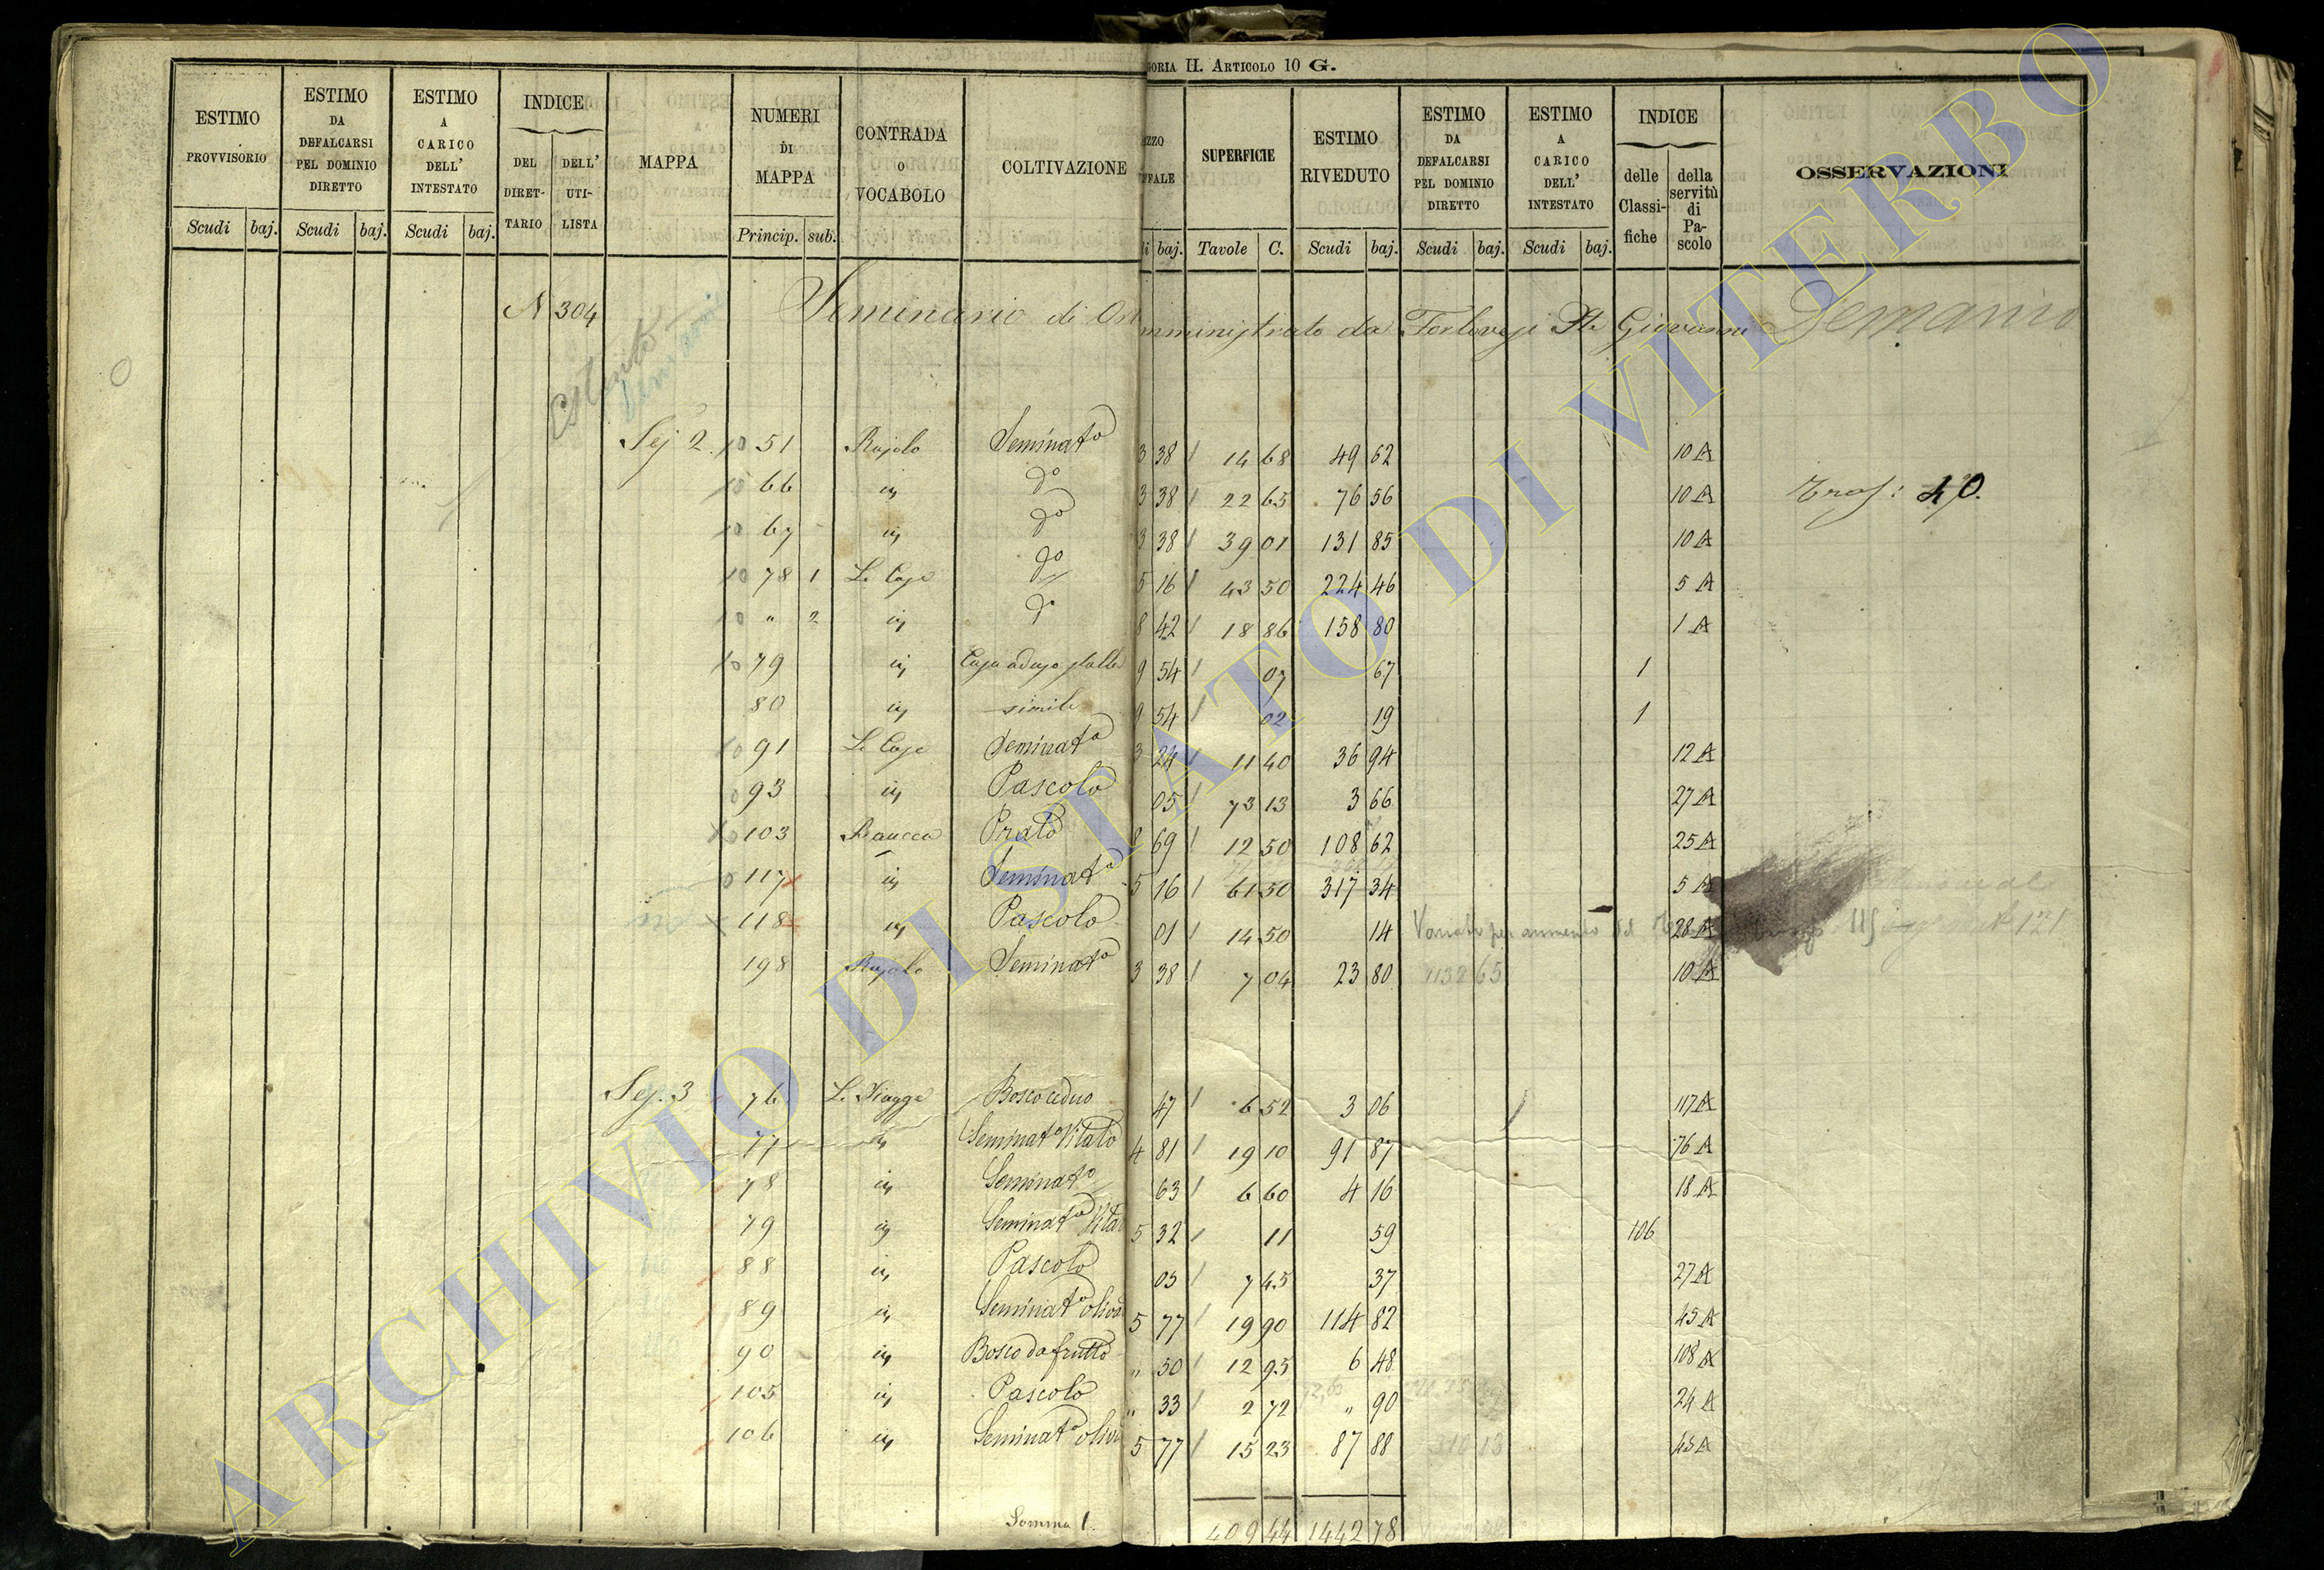 GORIA II. ARTICOLO 10 G.
ESTIMO PROVVISORIO Scudi baj.
ESTIMO DA DEFALCARSI PEL DOMINIO DIRETTO Scudi baj.
ESTIMO A CARICO DELL' INTESTATO Scudi baj.
INDICE DEL DIRET-TARIO DELL' UTI-LISTA
MAPPA
NUMERI DI MAPPA Princip. sub.
CONTRADA O VOCABOLO
COLTIVAZIONE
EZZO IFFALE i baj.
SUPERFICIE Tavole C.
ESTIMO RIVEDUTO Scudi baj.
ESTIMO DA DEFALCARSI PEL DOMINIO DIRETTO Scudi baj.
ESTIMO A CARICO DELL' INTESTATO Scudi baj.
INDICE delle Classi-fiche della servitù di Pa-scolo
OSSERVAZIONI
N 304 Seminario di Ort mministrato da Giovanni Demanio
Estimato
Sez 2. 10 51 Rujolo Seminato 3 38 14 68 49 62 10 A
10 66 iv do 3 38 22 65 76 56 10 A 40.
10 67 iv do 3 38 39 01 131 85 10 A
10 78 1 Le Case do 5 16 43 50 224 46 5 A
10 " 2 iv do 8 42 18 86 158 80 1 A
10 79 iv Casa ad uso stalla 9 54 07 67 1
80 iv simile 9 54 02 19 1
10 91 Le Case Seminato 3 24 11 40 36 94 12 A
0 93 iv Pascolo 05 73 13 3 66 27 A
10 103 Prato 8 69 12 50 108 62 25 A
0 117 iv Seminato 5 16 61 50 317 34 5 A
118 iv Pascolo 01 14 50 14 Variato per aumento del 28 A
198 Rujolo Seminato 3 38 7 04 23 80 1132 65 10 A
Sez. 3 76 Le Piagge Bosco ceduo 47 6 52 3 06 117 A
77 iv Seminato Vitato 4 81 19 10 91 87 76 A
78 iv Seminato 63 6 60 4 16 18 A
79 iv Seminato Vitat 5 32 11 59 106
88 iv Pascolo 05 7 45 37 27 A
89 iv Seminato oliva 5 77 19 90 114 82 45 A
90 iv Bosco da frutto " 50 12 95 6 48 108 A
105 iv Pascolo " 33 2 72 " 90 24 A
106 iv Seminato oliva 5 77 15 23 87 88 45 A
Somma 1. 409 44 1442 78
ARCHIVIO DI STATO DI VITERBO